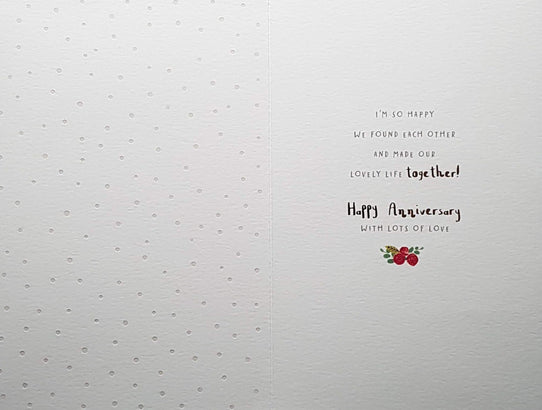 I'M SO HAPPY
WE FOUND EACH OTHER
AND MADE OUR
LOVELY LIFE together!
Happy Anniversary
WITH LOTS OF LOVE